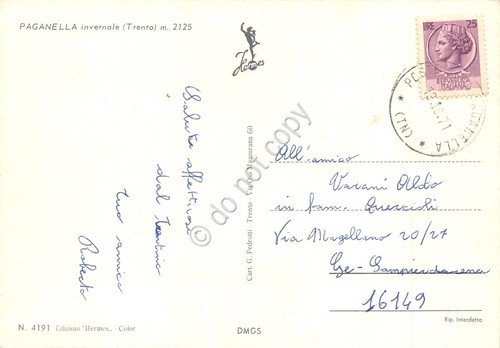 PAGANELLA invernale (Trento) m. 2125
Hermes
LIRE 25
REPUBBLICA
ITALIANA
(TN)
Saluti affettuosi
dal Trentino
tuo amico
Roberto
do not copy
Cart. G. Pedrotti - Trento
60
All'amico
Varani Aldo
in fam. Quercioli
Via Magellano 20/27
Ge-Sampierdarena
16149
Rip. Interdetta
N. 4191 Edizioni "Hermes,, - Color
DMGS